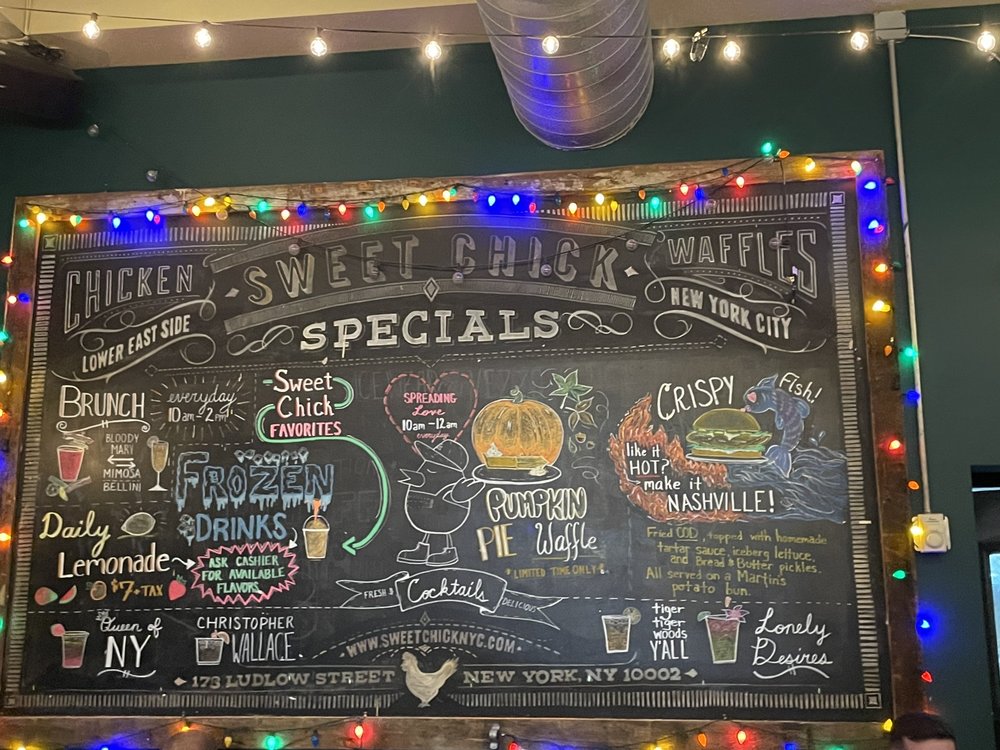 CHICKEN
LOWER EAST SIDE
SWEET CHICK
SPECIALS
WAFFLES
NEW YORK CITY
BRUNCH
everyday
10am-2pm
BLOODY
MARY
MIMOSA
BELLINI
Sweet
Chick
FAVORITES
SPREADING
Love
10am-12am
everyday
FROZEN
& DRINKS
Daily
Lemonade
$7+TAX
ASK CASHIER
FOR AVAILABLE
FLAVORS
PUMPKIN
PIE Waffle
*LIMITED TIME ONLY*
CRISPY
Fish!
like it
HOT?
make it
NASHVILLE!
Fried COD, topped with homemade
tartar sauce, iceberg lettuce,
and Bread & Butter pickles.
All served on a Martin's
potato bun.
FRESH & Cocktails DELICIOUS
the Queen of
NY
CHRISTOPHER
WALLACE.
WWW.SWEETCHICKNYC.COM
tiger
tiger
woods
Y'ALL
Lonely
Desires
173 LUDLOW STREET NEW YORK, NY 10002